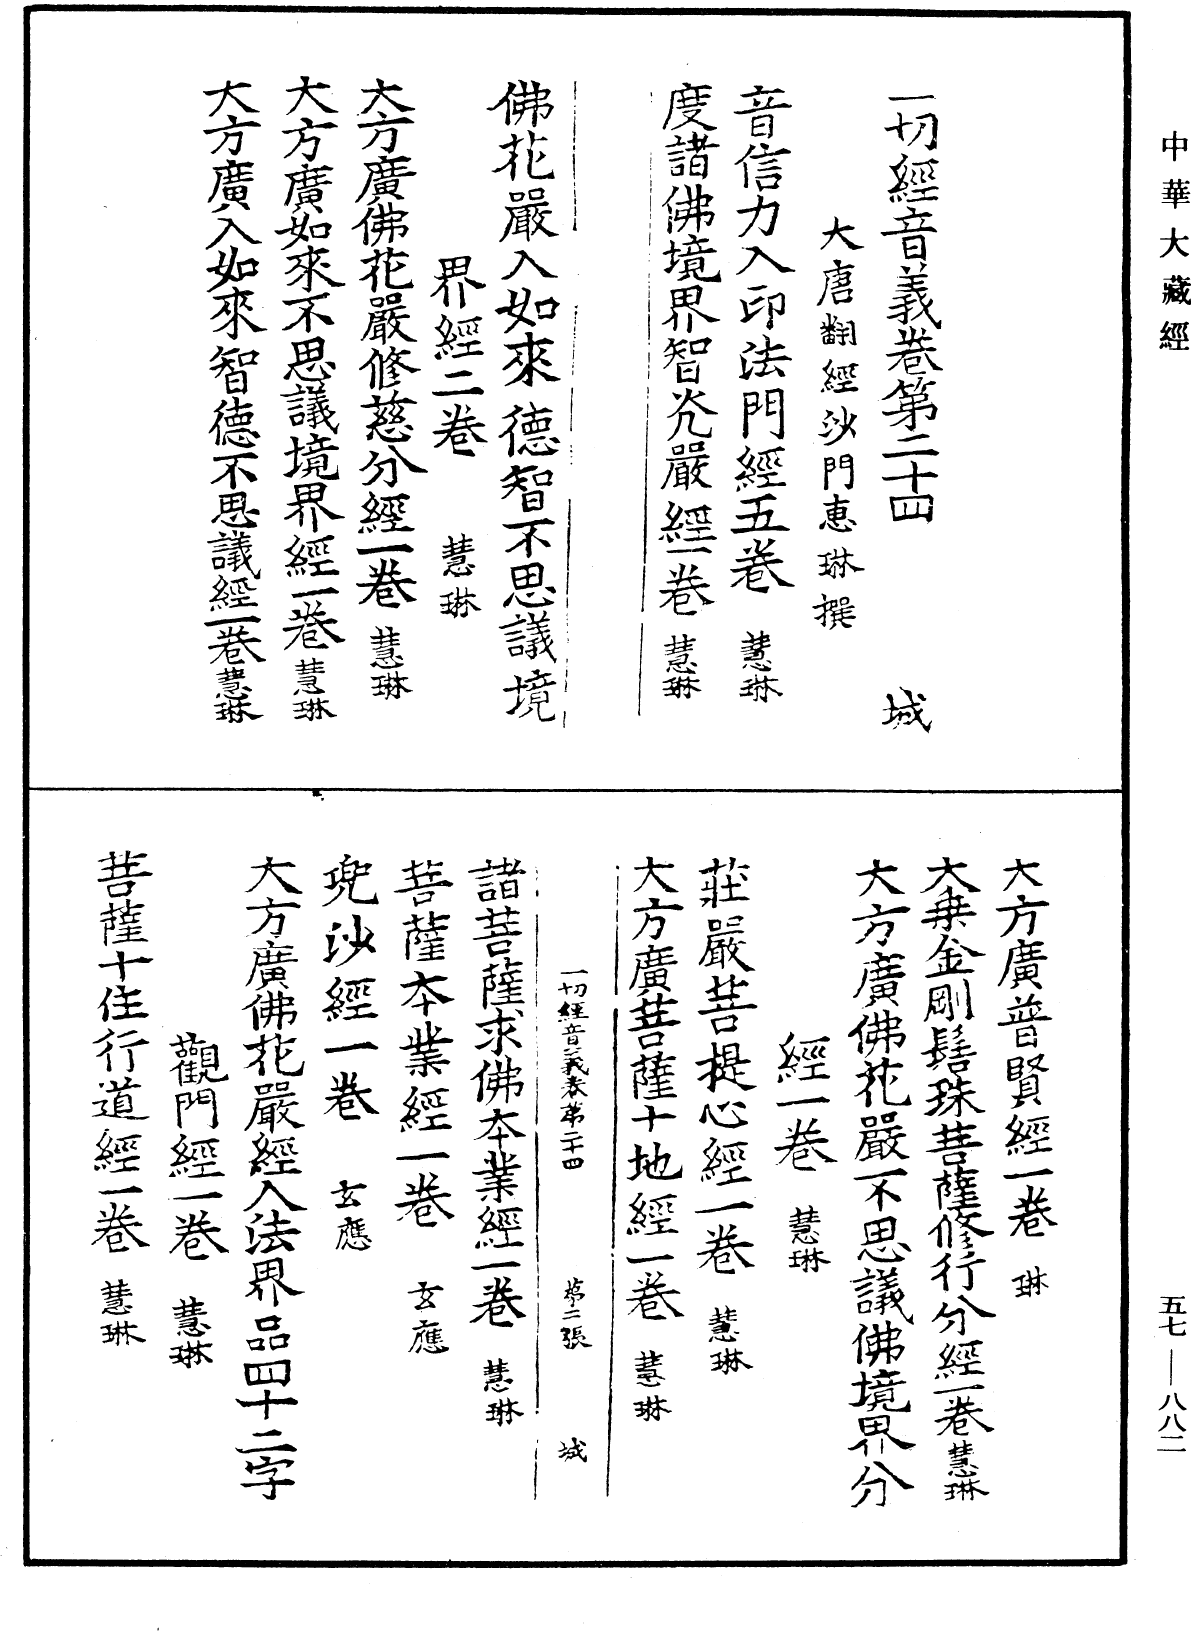 中華大藏經
一切經音義卷第二十四 城
大唐翻經沙門惠琳撰
音信力入印法門經五卷 慧琳
度諸佛境界智光嚴經一卷 慧琳
佛花嚴入如來德智不思議境
界經二卷 慧琳
大方廣佛花嚴修慈分經一卷 慧琳
大方廣如來不思議境界經一卷 慧琳
大方廣入如來智德不思議經一卷 慧琳
大方廣普賢經一卷 琳
大乗金剛髻珠菩薩修行分經一卷 慧琳
大方廣佛花嚴不思議佛境界分
經一卷 慧琳
莊嚴菩提心經一卷 慧琳
大方廣菩薩十地經一卷 慧琳
一切經音義卷第二十四 第二張 城
諸菩薩求佛本業經一卷 慧琳
菩薩本業經一卷 玄應
兜沙經一卷 玄應
大方廣佛花嚴經入法界品四十二字
觀門經一卷 慧琳
菩薩十住行道經一卷 慧琳
五七—八八二